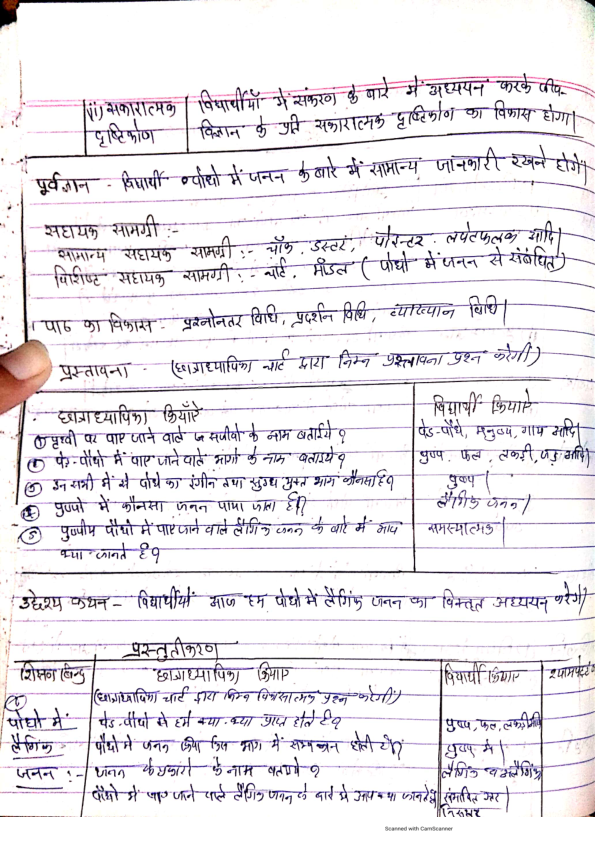 (ii) सकारात्मक दृष्टिकोण
विद्यार्थीयाँ में संकरण के बारे में अध्ययन करके जीव-
विज्ञान के प्रति सकारात्मक दृष्टिकोण का विकास होगा।
पूर्वज्ञान - विद्यार्थी पौधो में जनन के बारे में सामान्य जानकारी रखने होगें
सहायक सामग्री :-
सामान्य सहायक सामग्री :- चॉक, डस्टर, पोइन्टर, लपेटफलक आदि|
विशिष्ट सहायक सामग्री :- चार्ट, मॉडल ( पौधो में जनन से संबंधित)
पाठ का विकास - प्रश्नोनतर विधि, प्रदर्शन विधि, व्याख्यान विधि|
प्रस्तावना - (छात्राध्यापिका चार्ट द्वारा निम्न प्रस्तावना प्रश्न करेगी)
छात्राध्यापिका क्रियाएँ
विद्यार्थी क्रियाएँ
① पृथ्वी पर पाए जाने वाले सजीवो के नाम बताइये ?
पेड-पौधे, मनुष्य, गाय आदि|
पेड-पौधो में पाए जाने वाले भागो के नाम बताइये ?
पुष्प, फल, लकड़ी, जड़ आदि|
③ इन सभी में से पौधे का रंगीन तथा सुगंध युक्त भाग कौनसा है?
पुष्प |
④ पुष्पो में कौनसा जनन पाया जाता है?
लैंगिक जनन /
⑤ पुष्पीय पौधो में पाए जाने वाले लैंगिक जनन के बारे में आप
समस्यात्मक |
क्या जानते है?
उद्देश्य कथन - विद्यार्थीयों आज हम पौधो में लैंगिक जनन का विस्तृत अध्ययन करेगें/
प्रस्तुतीकरण
शिक्षण बिन्दु
छात्राध्यापिका क्रियाएँ
विद्यार्थी क्रियाएँ
(छात्राध्यापिका चार्ट द्वारा निम्न विकासात्मक प्रश्न करेगी)
पौधो में लैंगिक जनन :-
पेड-पौधो से हमें क्या-क्या प्राप्त होते है?
पुष्प, फल, लकड़ी आदि
पौधो में जनन क्रिया किस भाग में सम्पन्न होती है?
पुष्प में|
जनन के प्रकारो के नाम बताये ?
लैंगिक व अलैंगिक
पौधो में पाए जाने वाले लैंगिक जनन के बारे में आप क्या जानते है
संभावित उत्तर|
Scanned with CamScanner